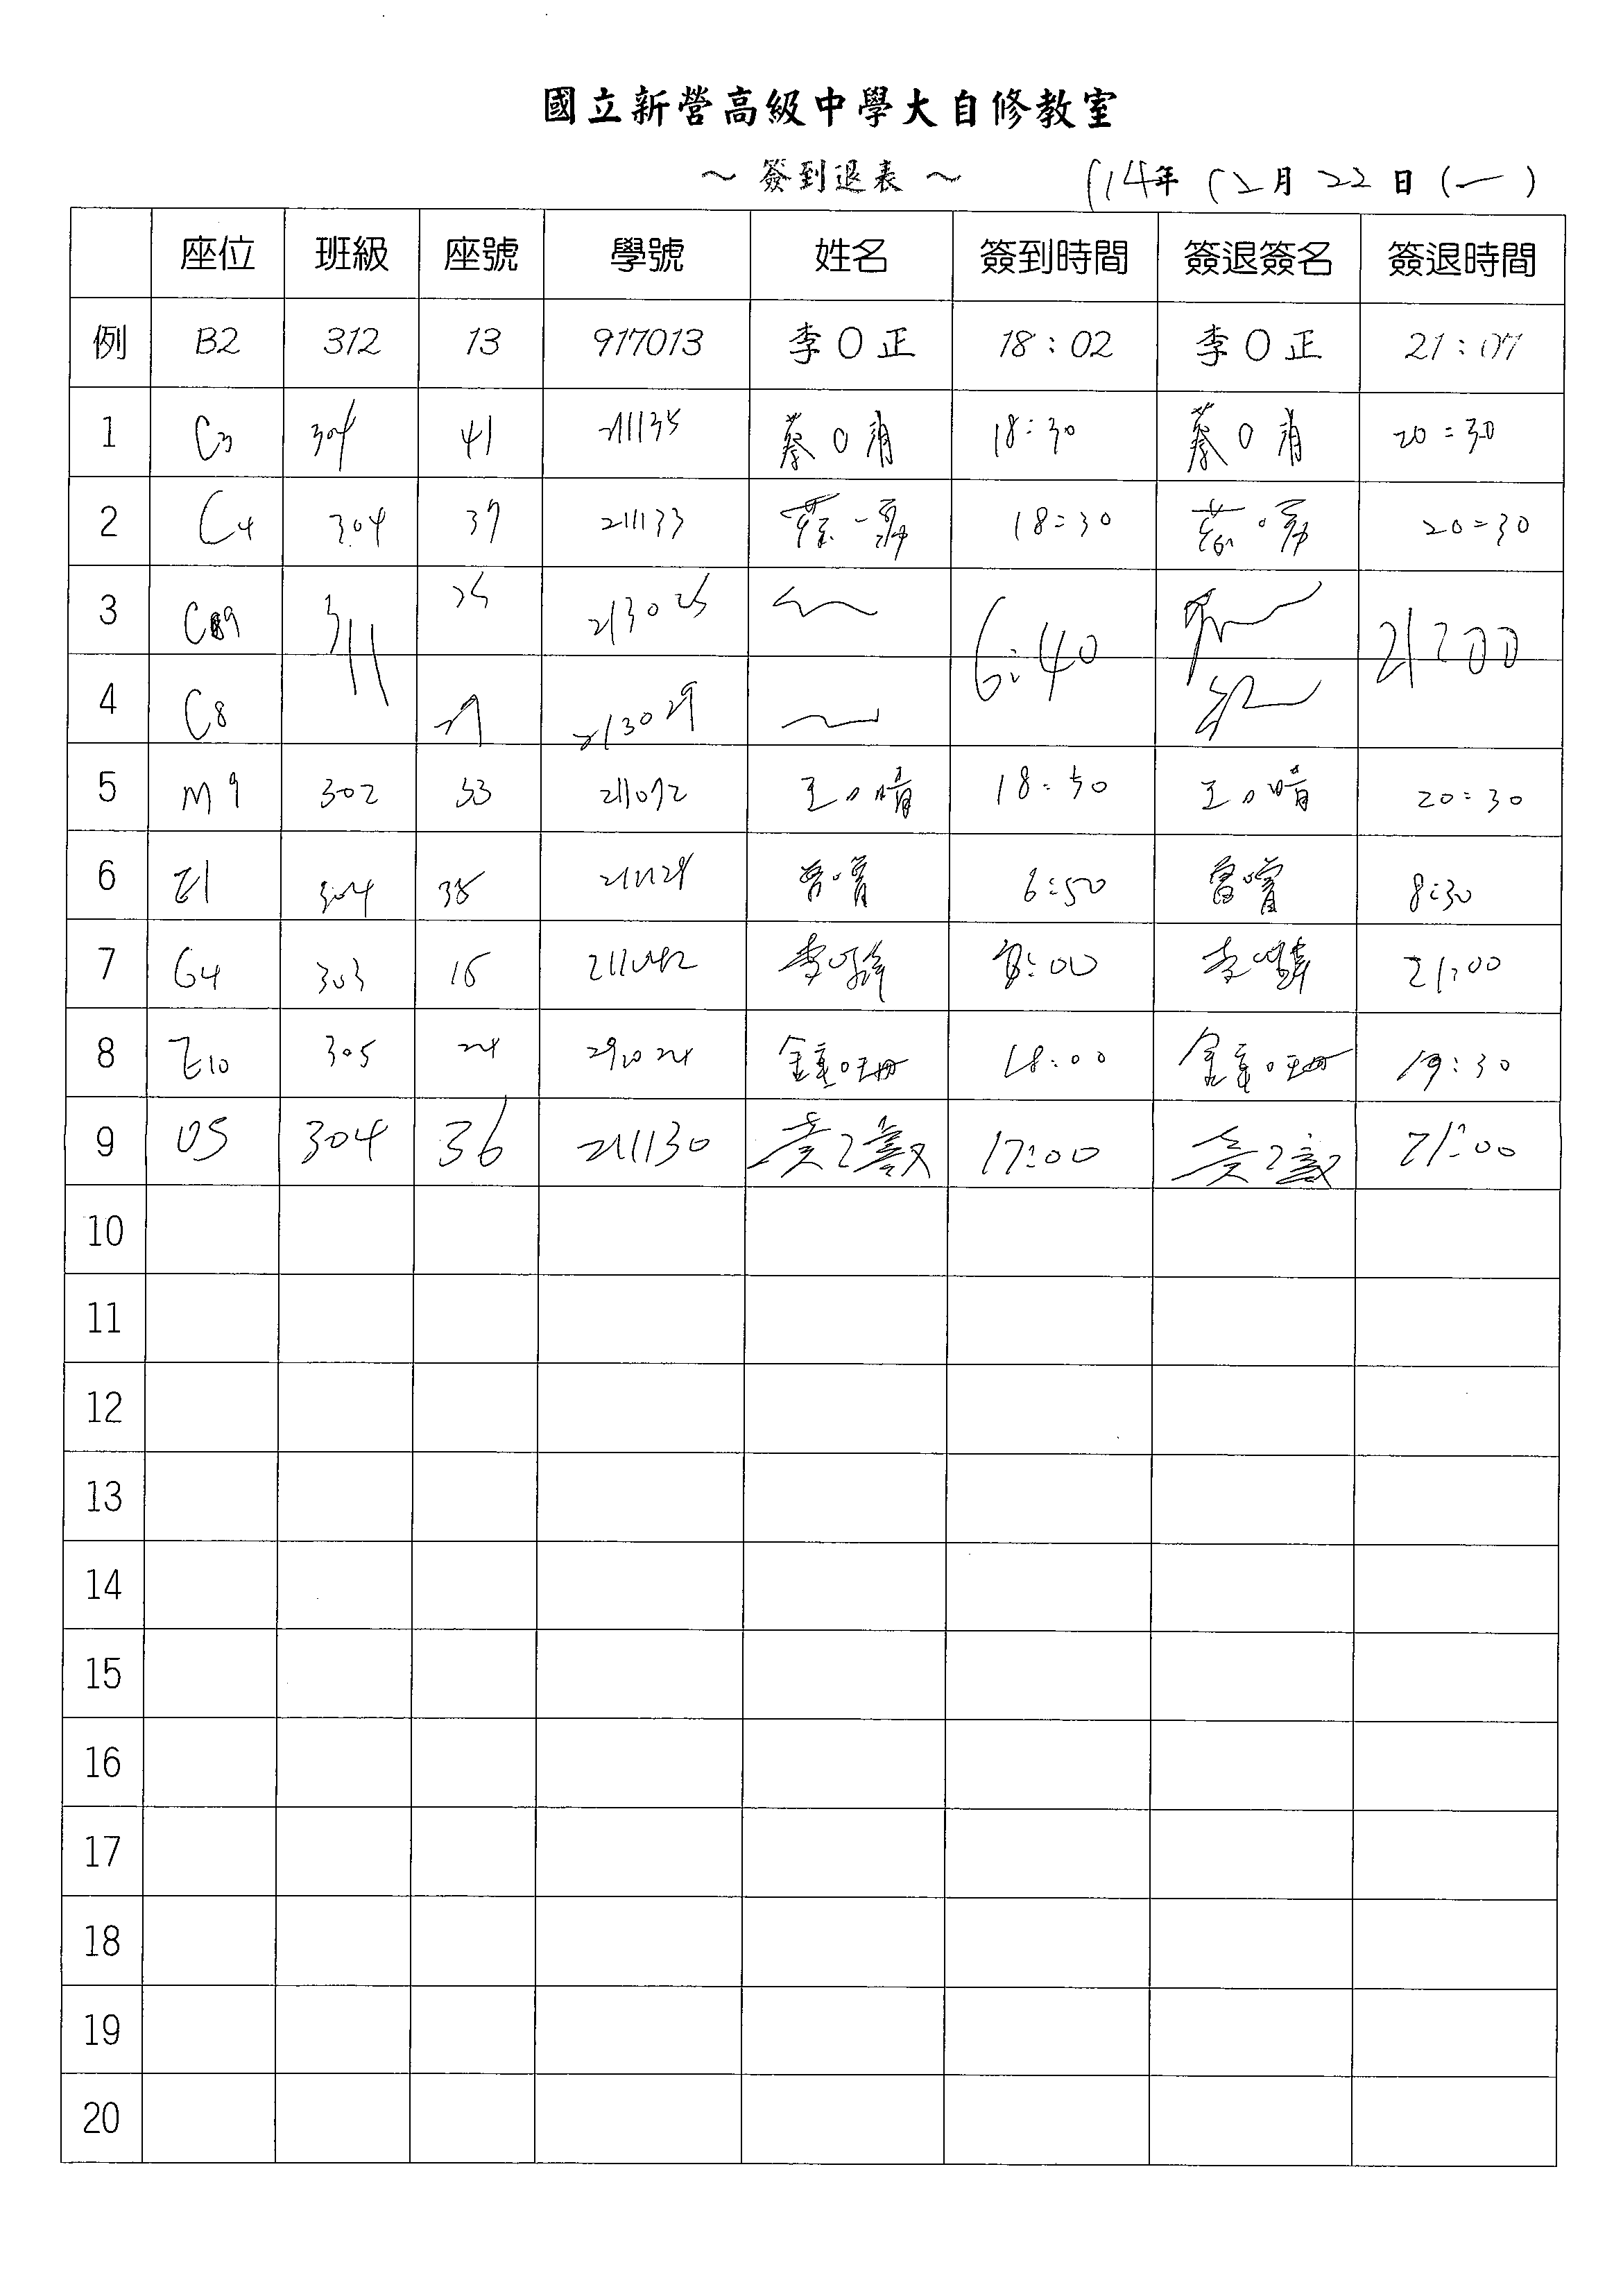 國立新營高級中學大自修教室
～ 簽到退表 ～ 114年 12月 22日 (一)
座位 班級 座號 學號 姓名 簽到時間 簽退簽名 簽退時間
例 B2 312 13 917013 李O正 18:02 李O正 21:07
1 C3 304 41 211135 蔡O 18:30 蔡O 20:30
2 C4 304 37 211133 18:30 20:30
3 C9 311 25 213025 6:40 21:00
4 C8 29 213029
5 M9 302 33 211072 王O晴 18:50 王O晴 20:30
6 E1 304 35 211129 曾 6:50 曾 8:30
7 G4 303 16 211042 李 :00 李 21:00
8 E10 305 24 24 鍾O珊 18:00 鍾O珊 19:30
9 U5 304 36 211130 17:00 21:00
10
11
12
13
14
15
16
17
18
19
20